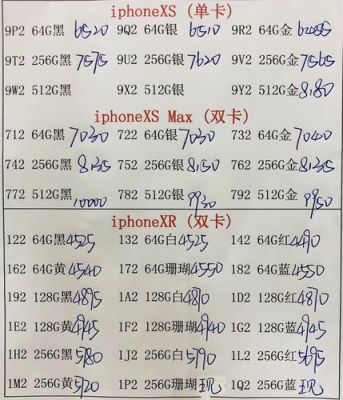 iphoneXS (单卡)
9P2 64G黑 6520 9Q2 64G银 6510 9R2 64G金
9T2 256G黑 7575 9U2 256G银 7620 9V2 256G金 7565
9W2 512G黑 9X2 512G银 9Y2 512G金 8180
iphoneXS Max (双卡)
712 64G黑 7030 722 64G银 7030 732 64G金 7040
742 256G黑 8135 752 256G银 8130 762 256G金 8135
772 512G黑 10000 782 512G银 9930 792 512G金 9950
iphoneXR (双卡)
122 64G黑 4525 132 64G白 4525 142 64G红 4490
162 64G黄 4540 172 64G珊瑚 4550 182 64G蓝 4550
192 128G黑 4895 1A2 128G白 4870 1D2 128G红 4870
1E2 128G黄 4945 1F2 128G珊瑚 4940 1G2 128G蓝 4945
1H2 256G黑 5780 1J2 256G白 5790 1L2 256G红 5695
1M2 256G黄 5720 1P2 256G珊瑚 现 1Q2 256G蓝 现